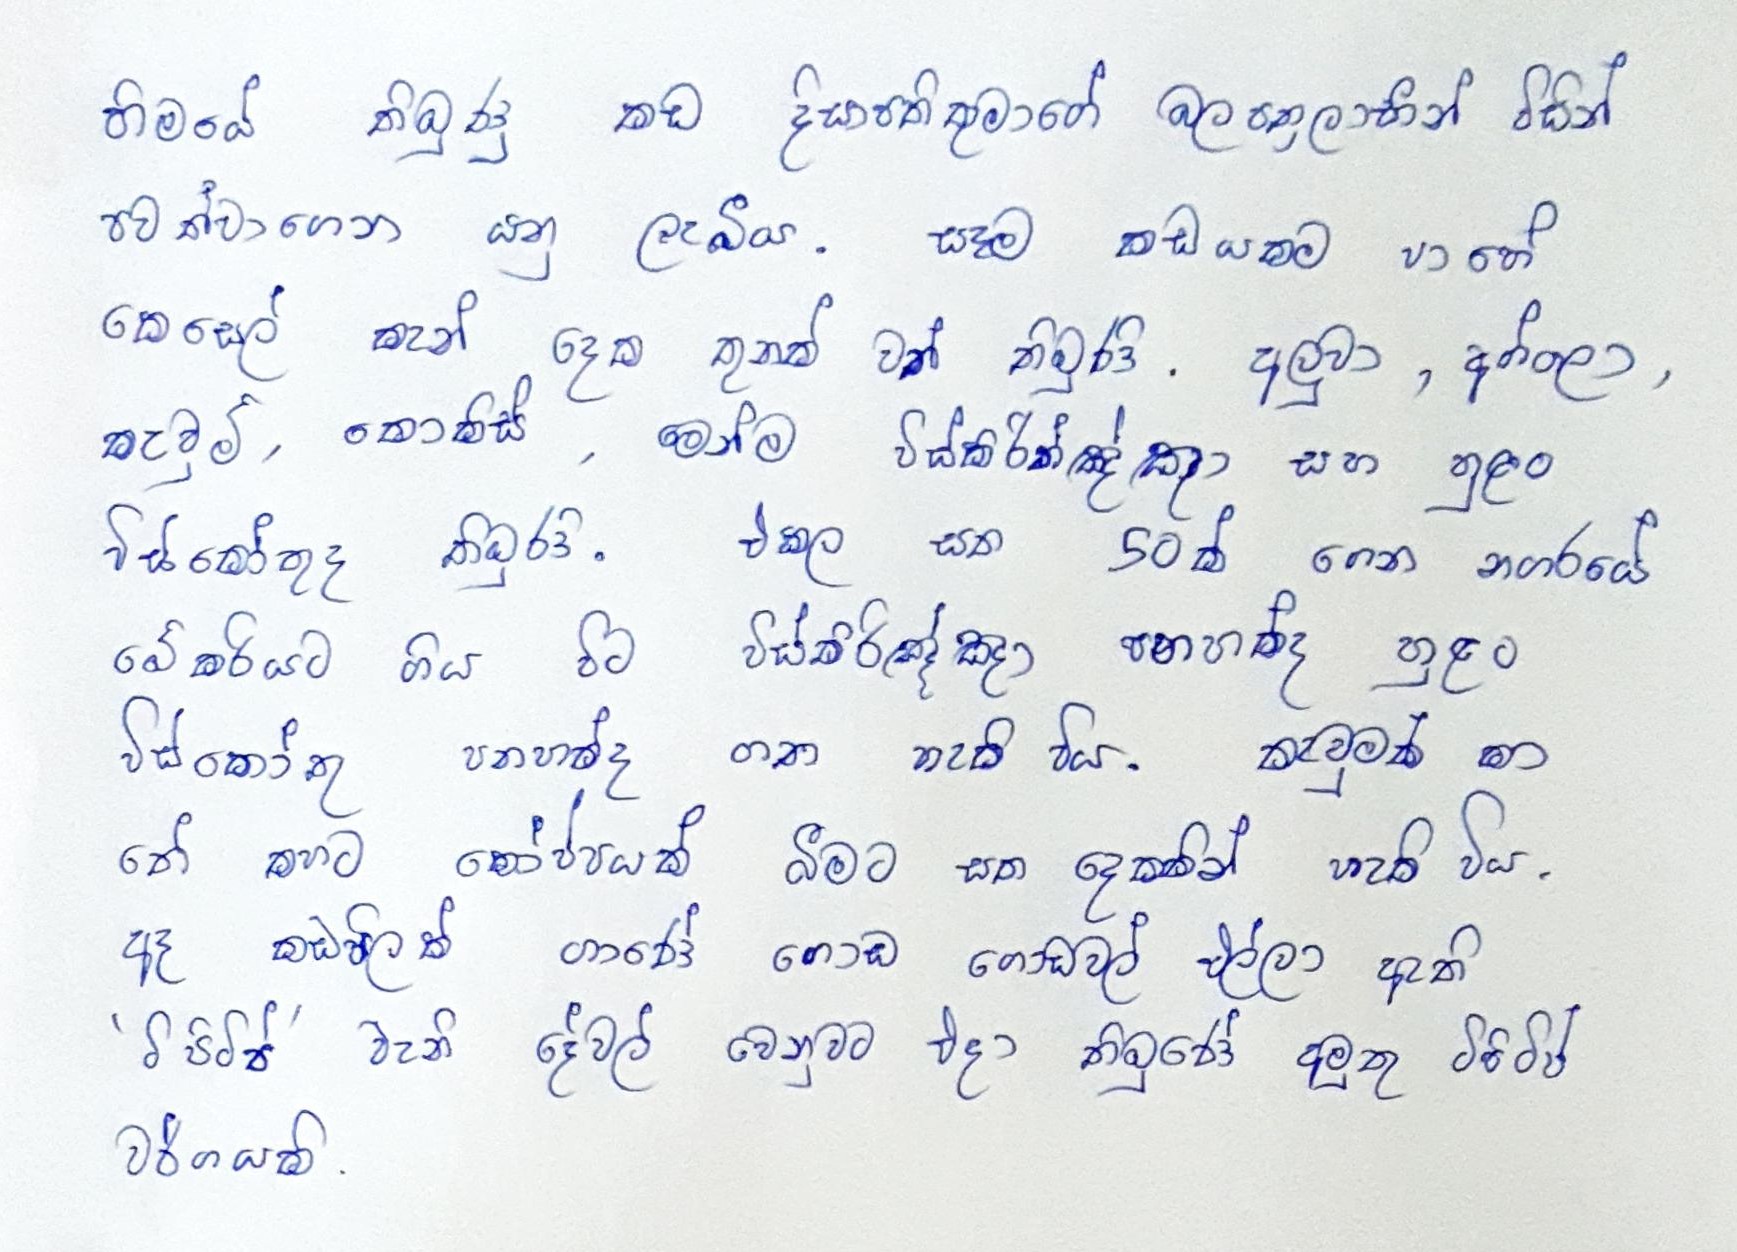 සිමයේ තිබුණු කඩ දිසාපතිතුමාගේ බලපත්‍රලාභීන් විසින්
පවත්වාගෙන යනු ලැබීය. සෑම කඩයකම පාහේ
කෙසෙල් කැන් දෙක තුනක් වත් තිබුණි. අලුවා, අග්ගලා,
කැවුම්, කොකිස්, මෙන්ම විස්කිරිඤ්ඤා සහ හුළං
විස්කෝතුද තිබුණි. එකල සත 50ක් ගෙන නගරයේ
බේකරියට ගිය විට විස්කිරිඤ්ඤා පනහක්ද හුළං
විස්කෝතු පනහක්ද ගත හැකි විය. කැවුමක් කා
තේ කහට කෝප්පයක් බීමට සත දෙකකින් හැකි විය.
අද කඩපිලක් ගානේ ගොඩ ගොඩවල් එල්ලා ඇති
'ටිපිටිප්' වැනි දේවල් වෙනුවට එදා තිබුණේ අමුතු ටිපිටිප්
වර්ගයකි.